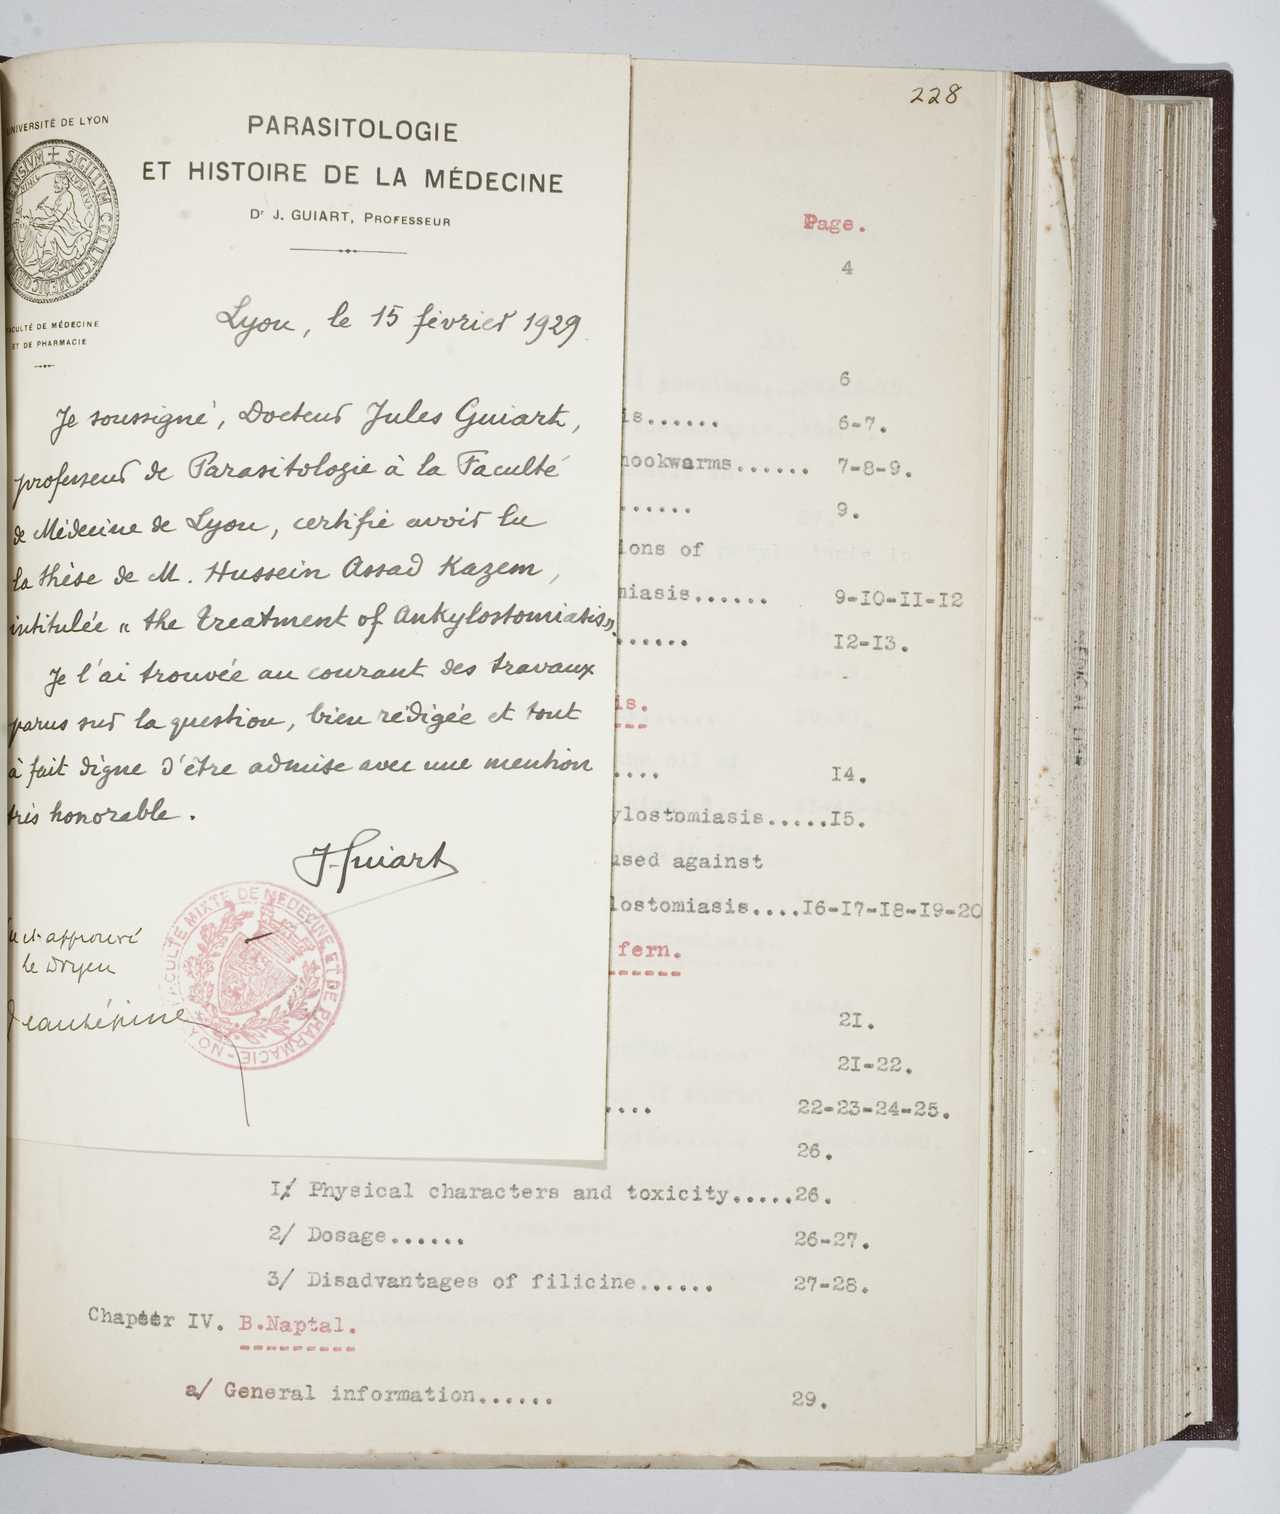 UNIVERSITÉ DE LYON
PARASITOLOGIE
ET HISTOIRE DE LA MÉDECINE
Dr J. GUIART, PROFESSEUR
FACULTÉ DE MÉDECINE
ET DE PHARMACIE
Lyon, le 15 février 1929
Je soussigné, Docteur Jules Guiart,
professeur de Parasitologie à la Faculté
de Médecine de Lyon, certifie avoir lu
la thèse de M. Hussein Assad Kazem,
intitulée „ the treatment of Ankylostomiatis„.
Je l'ai trouvée au courant des travaux
parus sur la question, bien rédigée et tout
à fait digne d'être admise avec une mention
très honorable.
J. Guiart
Vu et approuvé
le Doyen
FACULTE MIXTE DE MEDECINE ET DE PHARMACIE - LYON
228
Page.
4
6
is...... 6-7.
hookwarms...... 7-8-9.
...... 9.
ions of
miasis...... 9-IO-II-I2
...... I2-I3.
is.
.... I4.
ylostomiasis.....I5.
used against
lostomiasis....I6-I7-I8-I9-20
fern.
2I.
2I-22.
.... 22-23-24-25.
26.
I/ Physical characters and toxicity.....26.
2/ Dosage...... 26-27.
3/ Disadvantages of filicine...... 27-28.
Chapter IV. B.Naptal.
a/ General information...... 29.